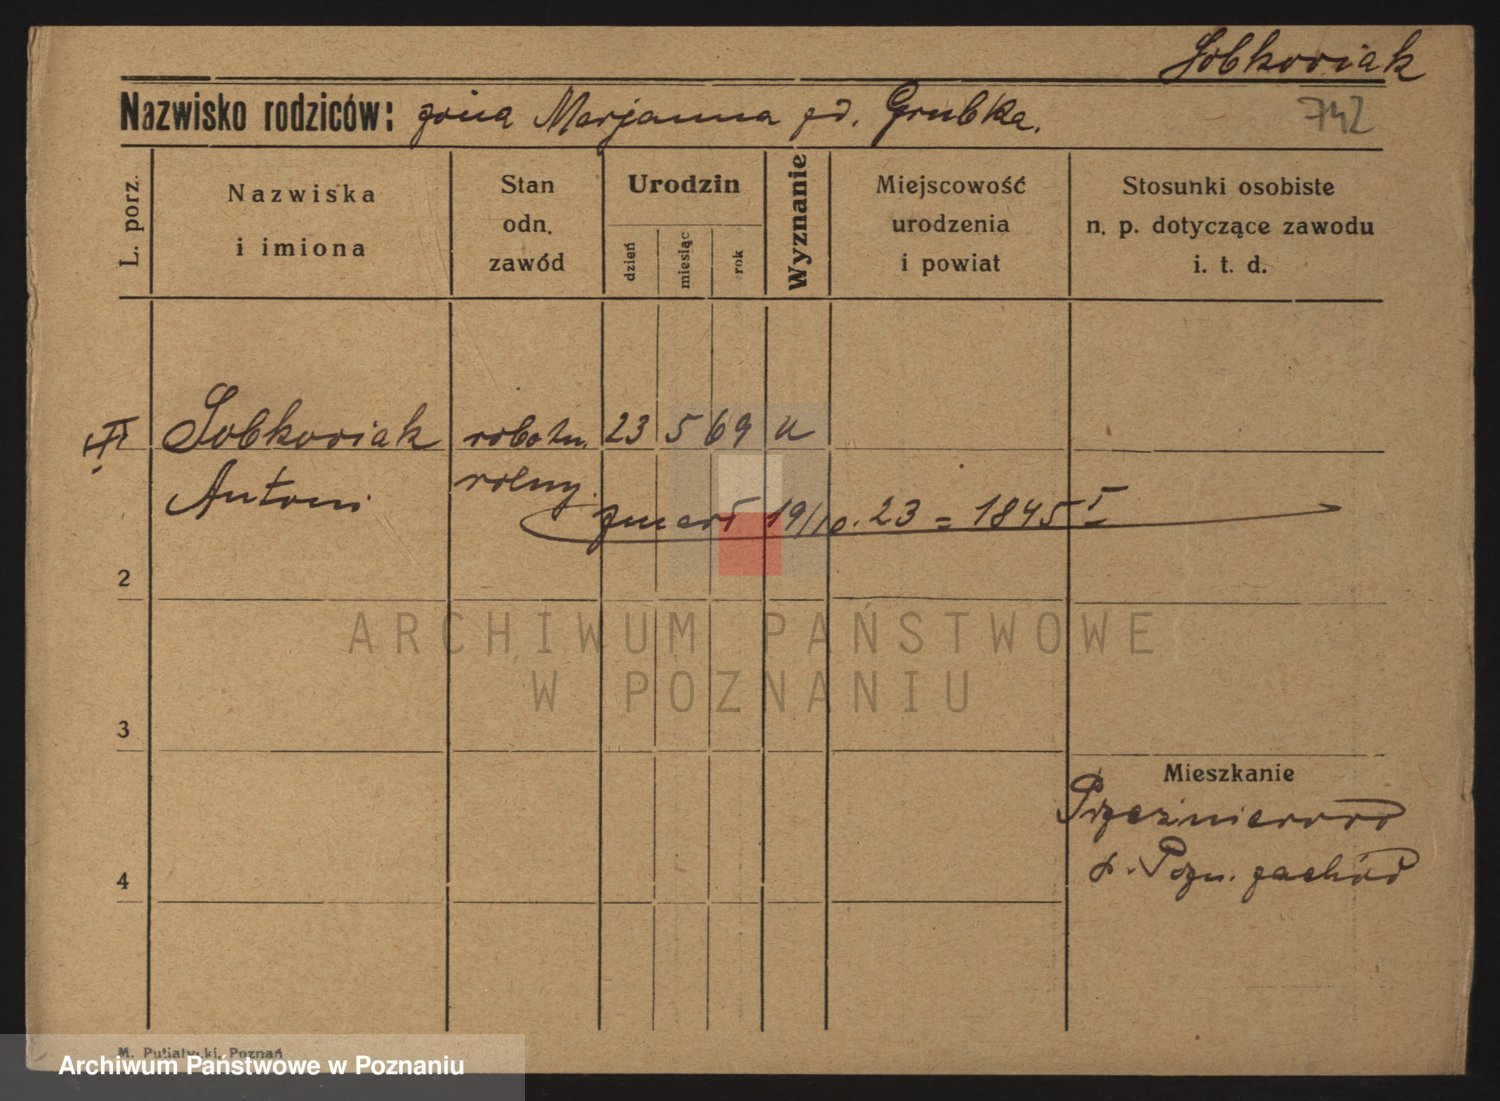 Sobkowiak
Nazwisko rodziców: żona Marjanna zd. Grubka.
742
L. porz.
Nazwiska
i imiona
Stan
odn.
zawód
Urodzin
dzień
miesiąc
rok
Wyznanie
Miejscowość
urodzenia
i powiat
Stosunki osobiste
n. p. dotyczące zawodu
i. t. d.
Sobkowiak robotn. 23 5 69 k
Antoni rolny.
zmarł 19/10. 23 = 1845 I
2
ARCHIWUM PAŃSTWOWE
W POZNANIU
3
Mieszkanie
Przeźmierowo
p. Pozn. zachód
4
M. Putiatycki, Poznań
Archiwum Państwowe w Poznaniu